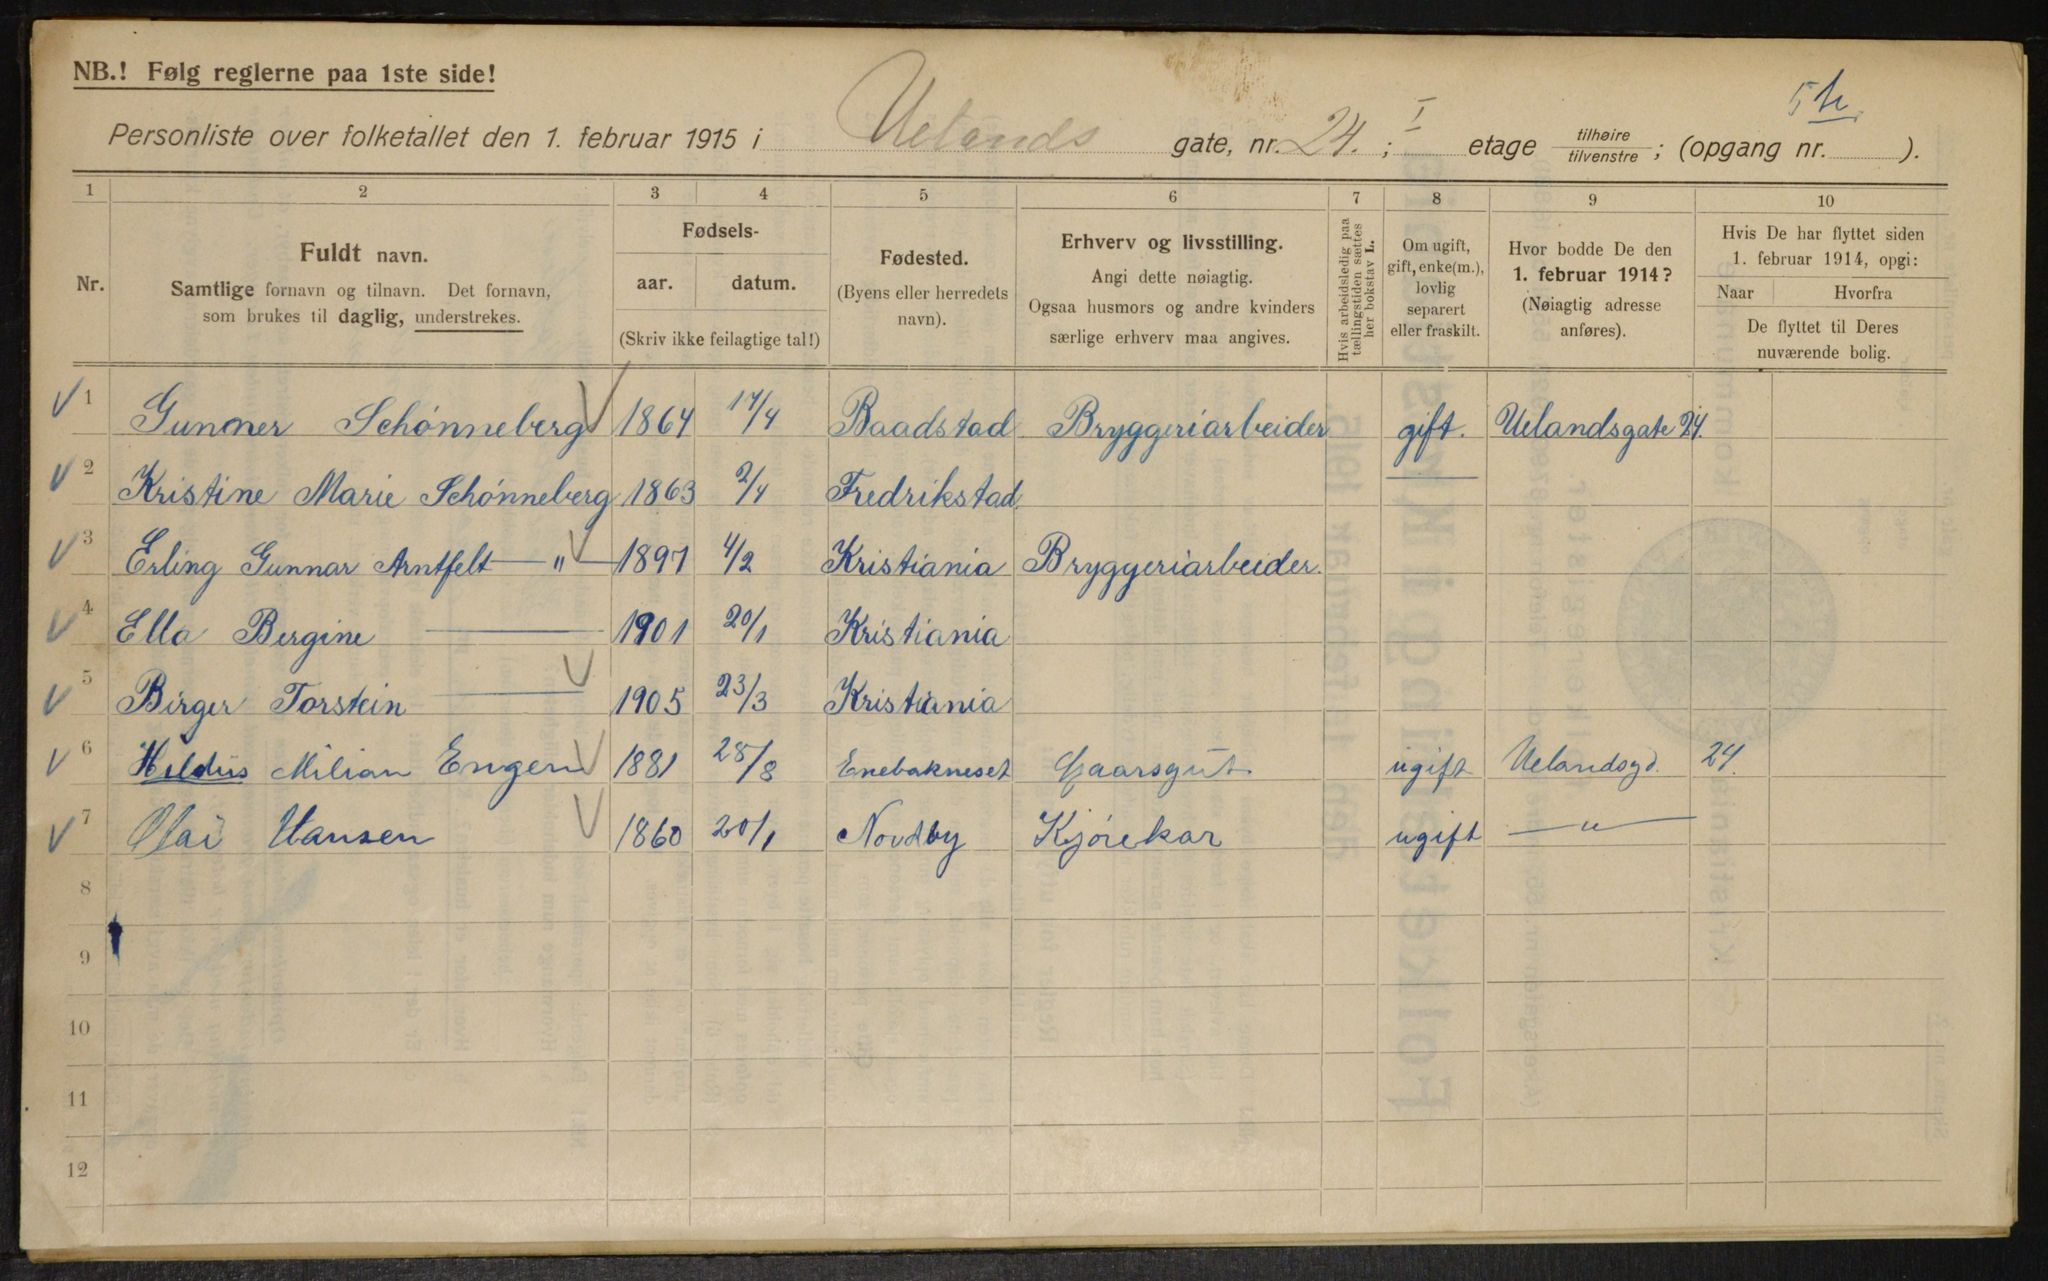 NB.! Følg reglerne paa 1ste side!
5 h
Personliste over folketallet den 1. februar 1915 i Uelands gate, nr. 24. ; I etage tilhøire / tilvenstre ; (opgang nr. ).
1 2 3 4 5 6 7 8 9 10
Nr.
Fuldt navn.
Samtlige fornavn og tilnavn. Det fornavn,
som brukes til daglig, understrekes.
Fødsels-
aar. datum.
(Skriv ikke feilagtige tal!)
Fødested.
(Byens eller herredets
navn).
Erhverv og livsstilling.
Angi dette nøiagtig.
Ogsaa husmors og andre kvinders
særlige erhverv maa angives.
Hvis arbeidsledig paa
tællingstiden sættes
her bokstav L.
Om ugift,
gift, enke(m.),
lovlig
separert
eller fraskilt.
Hvor bodde De den
1. februar 1914?
(Nøiagtig adresse
anføres).
Hvis De har flyttet siden
1. februar 1914, opgi:
Naar Hvorfra
De flyttet til Deres
nuværende bolig.
1 Gunner Schønneberg 1864 17/4 Baadstad Bryggeriarbeider gift. Uelandsgate 24.
2 Kristine Marie Schønneberg 1863 2/4 Fredrikstad. —
3 Erling Gunnar Arntfelt — „ — 1897 4/2 Kristiania Bryggeriarbeider.
4 Ella Bergine — 1901 20/1 Kristiania
5 Birger Torstein — 1905 23/3 Kristiania
6 Hildus Milian Engen 1881 28/8 Enebakneset Gaarsgut ugift Uelandsgd. 24.
7 Olai Hansen 1860 20/1 Nordby Kjørekar ugift — „ —
8
9
10
11
12